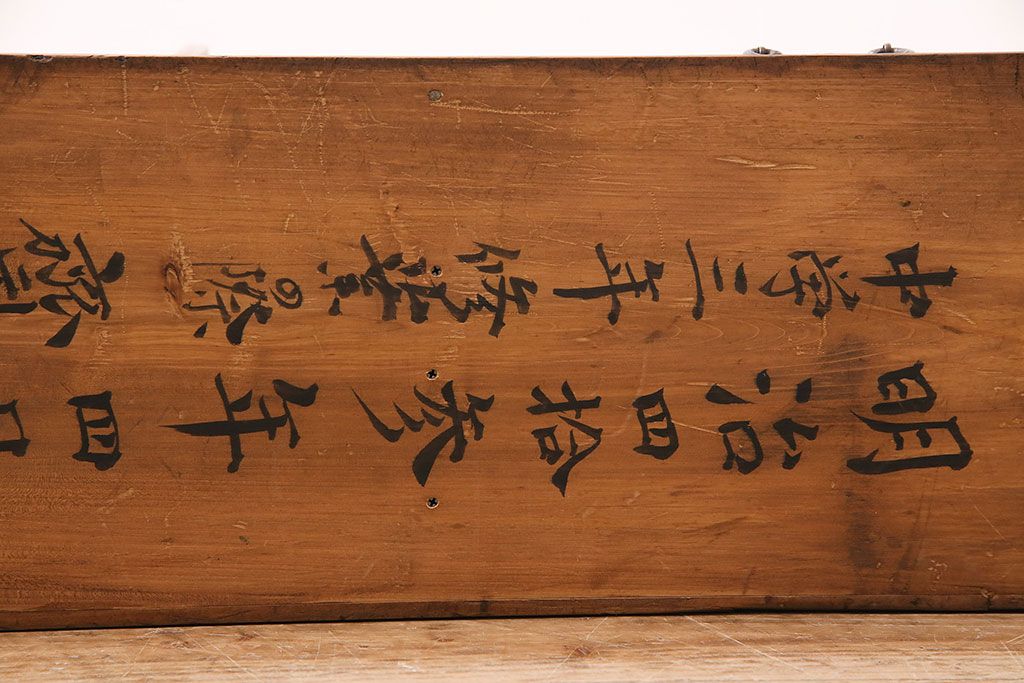 明治四拾参年四
中学三年修業の際